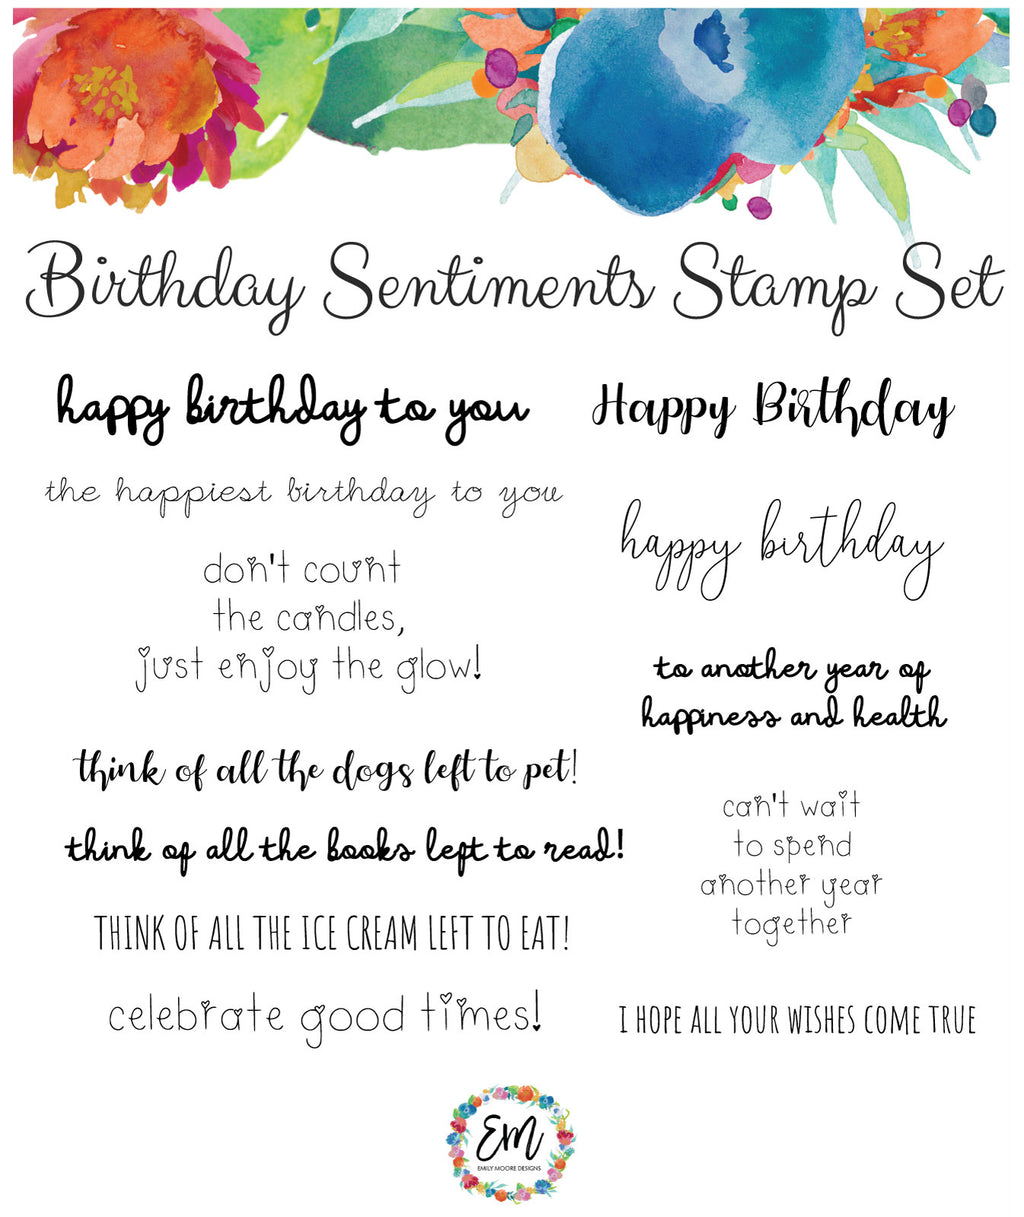 Birthday Sentiments Stamp Set
happy birthday to you
the happiest birthday to you
don't count
the candles,
just enjoy the glow!
think of all the dogs left to pet!
think of all the books left to read!
THINK OF ALL THE ICE CREAM LEFT TO EAT!
celebrate good times!
Happy Birthday
happy birthday
to another year of
happiness and health
can't wait
to spend
another year
together
I HOPE ALL YOUR WISHES COME TRUE
EM
EMILY MOORE DESIGNS